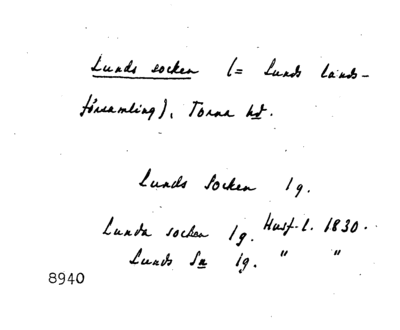 Lunds socken (= Lunds lands-
församling), Torna hd.
Lunds Socken 1g.
Lunda socken 1g. Husf.l. 1830.
Lunds Sn 1g. " "
8940